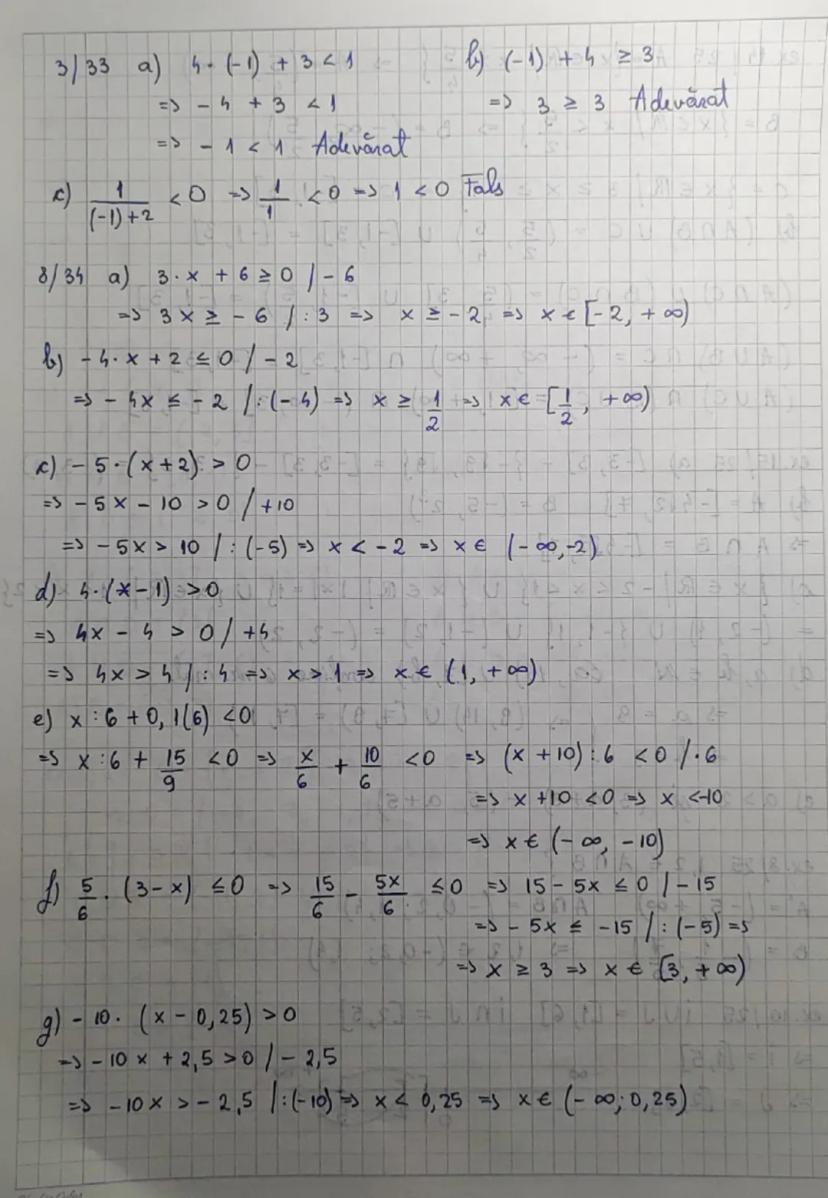 3/33 a) 4·(-1) + 3 < 1 b) (-1) + 4 ≥ 3
=> -4 + 3 < 1 => 3 ≥ 3 Adevărat
=> -1 < 1 Adevărat
c) 1/((-1)+2) < 0 => 1/1 < 0 => 1 < 0 Fals
8/34 a) 3·x + 6 ≥ 0 / -6
=> 3x ≥ -6 / :3 => x ≥ -2 => x ∈ [-2, +∞)
b) -4·x + 2 ≤ 0 / -2
=> -4x ≤ -2 / :(-4) => x ≥ 1/2 => x ∈ [1/2, +∞)
c) -5·(x+2) > 0
=> -5x - 10 > 0 / +10
=> -5x > 10 / :(-5) => x < -2 => x ∈ (-∞,-2)
d) 4·(x-1) > 0
=> 4x - 4 > 0 / +4
=> 4x > 4 / :4 => x > 1 => x ∈ (1, +∞)
e) x:6 + 0,1(6) < 0
=> x:6 + 15/9 < 0 => x/6 + 10/6 < 0 => (x+10):6 < 0 / ·6
=> x+10 < 0 => x < -10
=> x ∈ (-∞, -10)
f) 5/6 · (3-x) ≤ 0 => 15/6 - 5x/6 ≤ 0 => 15 - 5x ≤ 0 / -15
=> -5x ≤ -15 / :(-5) =>
=> x ≥ 3 => x ∈ [3, +∞)
g) -10·(x - 0,25) > 0
=> -10x + 2,5 > 0 / -2,5
=> -10x > -2,5 / :(-10) => x < 0,25 => x ∈ (-∞; 0,25)